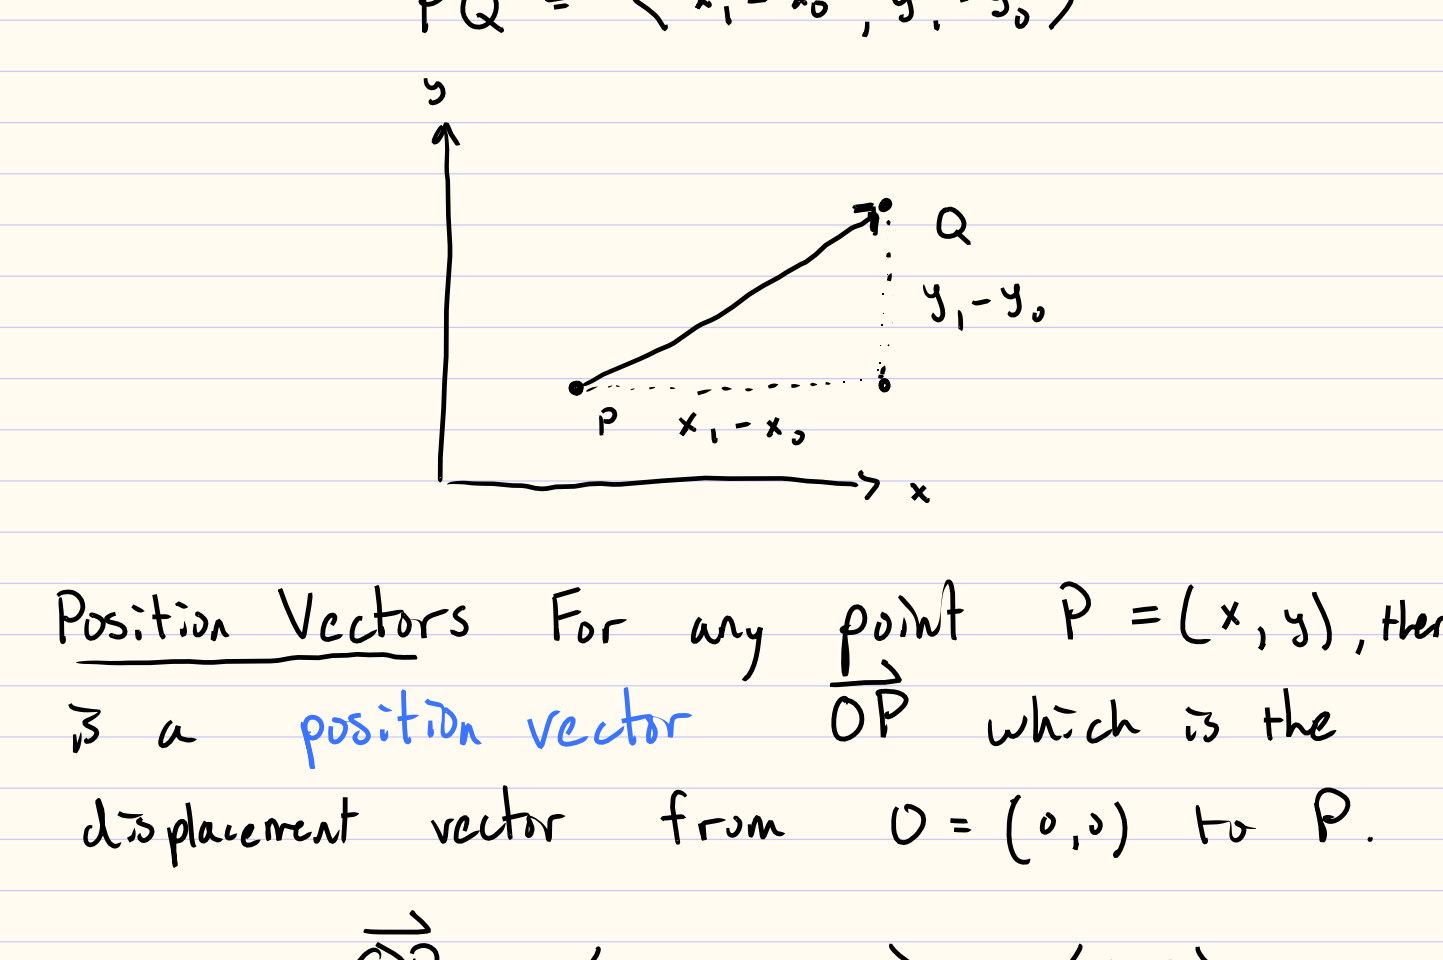 PQ = ( x₁ - x₀ , y₁ - y₀ )
y
Q
y₁ - y₀
P x₁ - x₀
x
Position Vectors For any point P = (x, y), ther
is a position vector OP which is the
displacement vector from O = (0,0) to P.